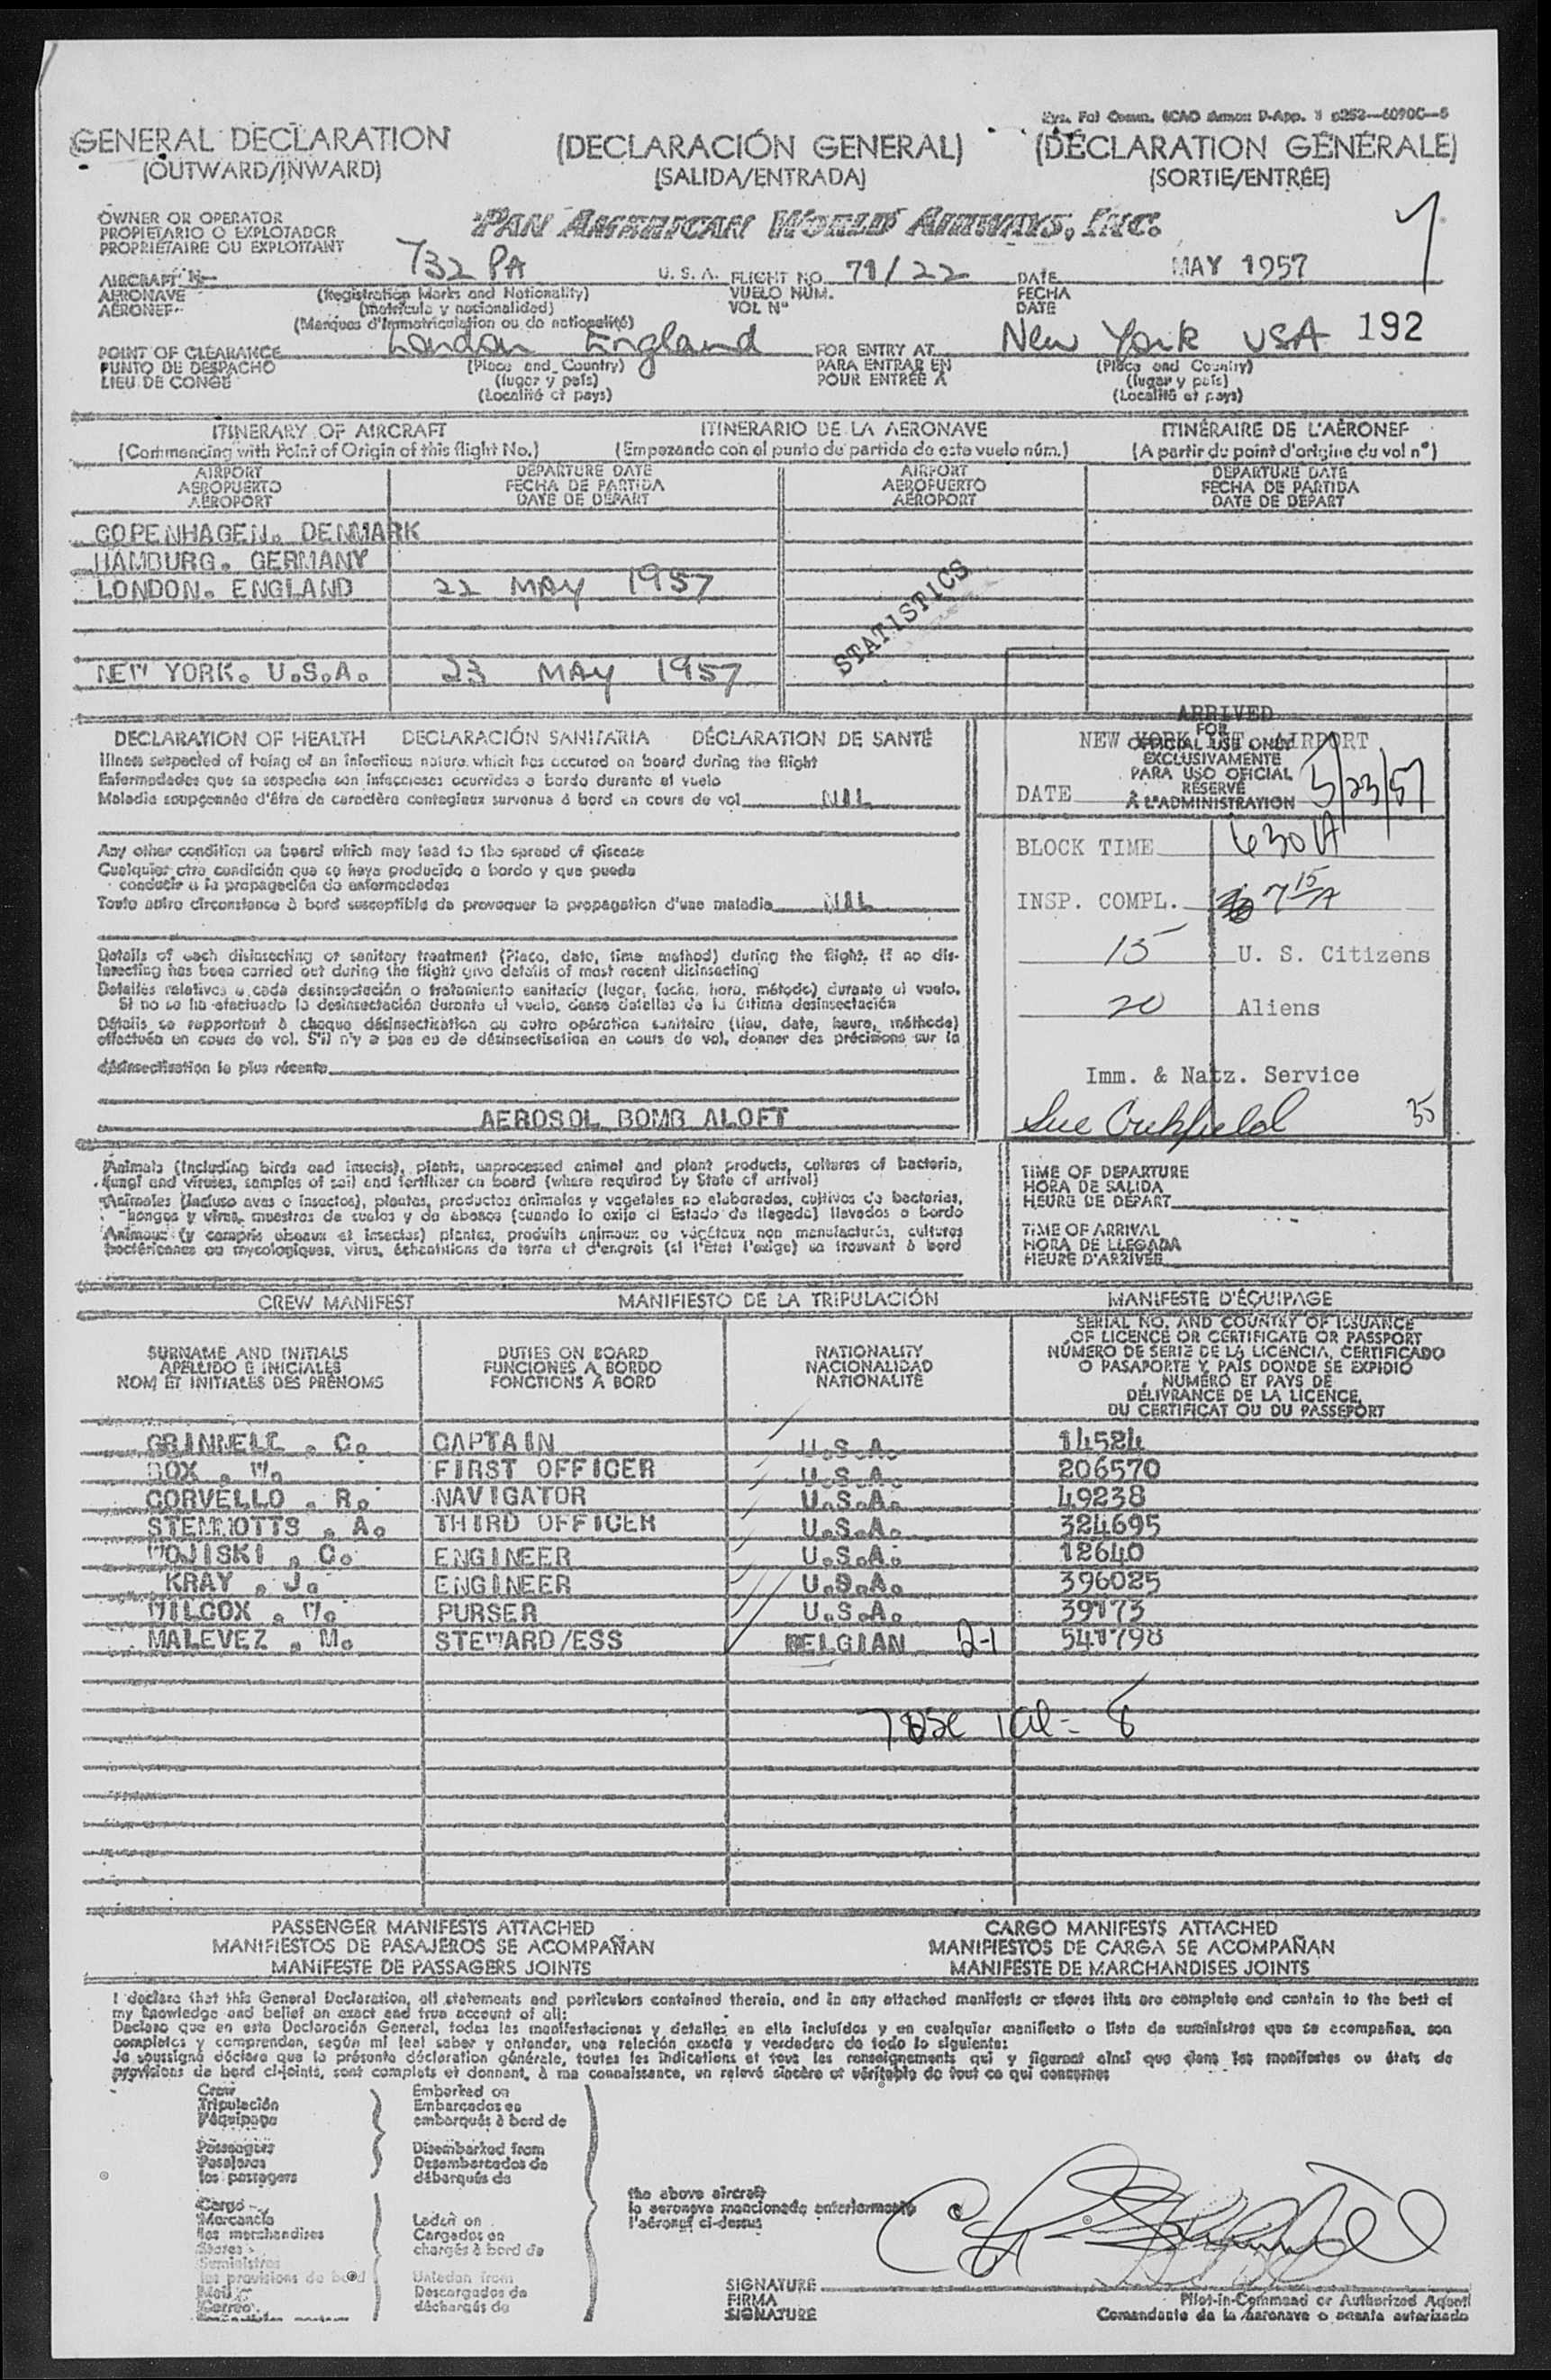 GENERAL DECLARATION (DECLARACIÓN GENERAL) (DÉCLARATION GÉNÉRALE)
(OUTWARD/INWARD) (SALIDA/ENTRADA) (SORTIE/ENTRÉE)
OWNER OR OPERATOR
PROPIETARIO O EXPLOTADOR
PROPRIÉTAIRE OU EXPLOITANT
PAN AMERICAN WORLD AIRWAYS, INC.
AIRCRAFT N- 732 PA U. S. A. FLIGHT NO. 71/22 DATE MAY 1957
AERONAVE (Registration Marks and Nationality) VUELO NÚM. FECHA
AÉRONEF (matrícula y nacionalidad) VOL Nº DATE
(Marques d'immatriculation ou de nationalité)
POINT OF CLEARANCE London England FOR ENTRY AT New York USA 192
PUNTO DE DESPACHO (Place and Country) PARA ENTRAR EN (Place and Country)
LIEU DE CONGÉ (lugar y país) POUR ENTRÉE À (lugar y país)
(Localité et pays) (Localité et pays)
ITINERARY OF AIRCRAFT ITINERARIO DE LA AERONAVE ITINÉRAIRE DE L'AÉRONEF
(Commencing with Point of Origin of this flight No.) (Empezando con el punto de partida de este vuelo núm.) (A partir du point d'origine du vol nº)
AIRPORT DEPARTURE DATE AIRPORT DEPARTURE DATE
AEROPUERTO FECHA DE PARTIDA AEROPUERTO FECHA DE PARTIDA
AÉROPORT DATE DE DÉPART AÉROPORT DATE DE DÉPART
COPENHAGEN. DENMARK
HAMBURG. GERMANY
LONDON. ENGLAND 22 MAY 1957
STATISTICS
NEW YORK. U.S.A. 23 MAY 1957
DECLARATION OF HEALTH DECLARACIÓN SANITARIA DÉCLARATION DE SANTÉ
Illness suspected of being of an infectious nature which has occured on board during the flight
Enfermedades que se sospecha son infecciosas ocurridas a bordo durante el vuelo
Maladie soupçonnée d'être de caractère contagieux survenue à bord en cours de vol NIL
Any other condition on board which may lead to the spread of disease
Cualquier otra condición que se haya producido a bordo y que pueda
conducir a la propagación de enfermedades
Toute autre circonstance à bord susceptible de provoquer la propagation d'une maladie NIL
Details of each disinsecting or sanitary treatment (Place, date, time method) during the flight. If no dis-
insecting has been carried out during the flight give details of most recent disinsecting
Detalles relativos a cada desinsectación o tratamiento sanitario (lugar, fecha, hora, método) durante el vuelo.
Si no se ha efectuado la desinsectación durante el vuelo, dense detalles de la última desinsectación
Détails se rapportant à chaque désinsectisation ou autre opération sanitaire (lieu, date, heure, méthode)
effectuée en cours de vol. S'il n'y a pas eu de désinsectisation en cours de vol, donner des précisions sur la
désinsectisation la plus récente
AEROSOL BOMB ALOFT
ARRIVED
NEW YORK INT. AIRPORT
FOR
OFFICIAL USE ONLY
EXCLUSIVAMENTE
PARA USO OFICIAL
RÉSERVÉ
À L'ADMINISTRATION
DATE 5/23/57
BLOCK TIME 630 A
INSP. COMPL. 7 15 A
15 U. S. Citizens
20 Aliens
Imm. & Natz. Service
35
Animals (including birds and insects), plants, unprocessed animal and plant products, cultures of bacteria,
fungi and viruses, samples of soil and fertilizer on board (where required by State of arrival)
Animales (incluso aves o insectos), plantas, productos animales y vegetales no elaborados, cultivos de bacterias,
hongos y virus, muestras de suelos y de abonos (cuando lo exija el Estado de llegada) llevados a bordo
Animaux (y compris oiseaux et insectes) plantes, produits animaux ou végétaux non manufacturés, cultures
bactériennes ou mycologiques, virus, échantillons de terre et d'engrais (si l'État l'exige) se trouvant à bord
TIME OF DEPARTURE
HORA DE SALIDA
HEURE DE DÉPART
TIME OF ARRIVAL
HORA DE LLEGADA
HEURE D'ARRIVÉE
CREW MANIFEST MANIFIESTO DE LA TRIPULACIÓN MANIFESTE D'ÉQUIPAGE
SURNAME AND INITIALS
APELLIDO E INICIALES
NOM ET INITIALES DES PRÉNOMS
DUTIES ON BOARD
FUNCIONES A BORDO
FONCTIONS À BORD
NATIONALITY
NACIONALIDAD
NATIONALITÉ
SERIAL NO. AND COUNTRY OF ISSUANCE
OF LICENCE OR CERTIFICATE OR PASSPORT
NÚMERO DE SERIE DE LA LICENCIA, CERTIFICADO
O PASAPORTE Y PAÍS DONDE SE EXPIDIÓ
NUMÉRO ET PAYS DE
DÉLIVRANCE DE LA LICENCE,
DU CERTIFICAT OU DU PASSEPORT
GRINNELL . C. CAPTAIN U.S.A. 14524
FOX . W. FIRST OFFICER U.S.A. 206570
CORVELLO . R. NAVIGATOR U.S.A. 49238
STEMMOTTS . A. THIRD OFFICER U.S.A. 324695
WOJISKI . C. ENGINEER U.S.A. 12640
KRAY . J. ENGINEER U.S.A. 396025
WILCOX . W. PURSER U.S.A. 39173
MALEVEZ . M. STEWARD/ESS BELGIAN 2-1 541798
7 USC 1 al = 8
PASSENGER MANIFESTS ATTACHED CARGO MANIFESTS ATTACHED
MANIFIESTOS DE PASAJEROS SE ACOMPAÑAN MANIFIESTOS DE CARGA SE ACOMPAÑAN
MANIFESTE DE PASSAGERS JOINTS MANIFESTE DE MARCHANDISES JOINTS
I declare that this General Declaration, all statements and particulars contained therein, and in any attached manifests or stores lists are complete and contain to the best of
my knowledge and belief an exact and true account of all:
Declaro que en esta Declaración General, todas las manifestaciones y detalles en ella incluídos y en cualquier manifiesto o lista de suministros que se acompañan, son
completos y comprenden, según mi leal saber y entender, una relación exacta y verdadera de todo lo siguiente:
Je soussigné déclare que la présente déclaration générale, toutes les indications et tous les renseignements qui y figurent ainsi que dans les manifestes ou états de
provisions de bord ci-joints, sont complets et donnent, à ma connaissance, un relevé sincère et véritable de tout ce qui concerne:
Crew Embarked on
Tripulación Embarcados en
l'équipage embarqués à bord de
Passengers Disembarked from
Pasajeros Desembarcados de
les passagers débarqués de
Cargo
Mercancía Laden on
les marchandises Cargados en
Stores chargés à bord de
Suministros
les provisions de bord Unladen from
Mail Descargados de
Correo déchargés de
the above aircraft
la aeronave mencionada anteriormente
l'aéronef ci-dessus
SIGNATURE
FIRMA
SIGNATURE
Pilot-in-Command or Authorized Agent
Comandante de la Aeronave o agente autorizado